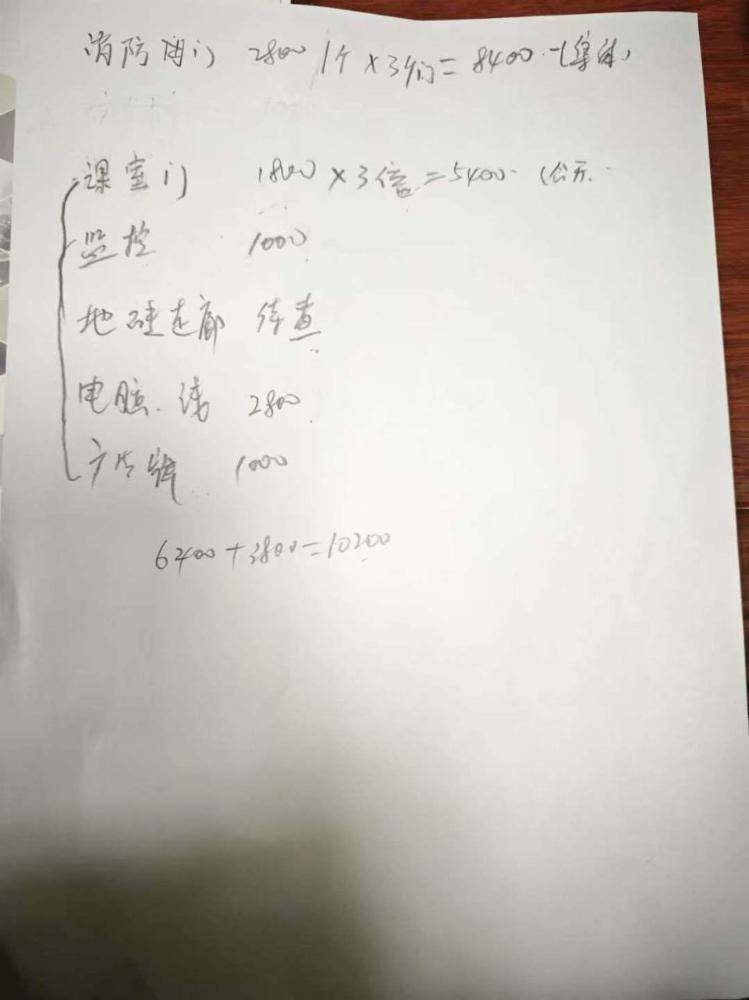 消防闭门 2800 1个×3个门=8400.-(集体)
课室门 1800×3倍=5400. (公开.
监控 1000
地 走廊 待查
电脑.线 2800
广告牌 1000
6400+3800=10200